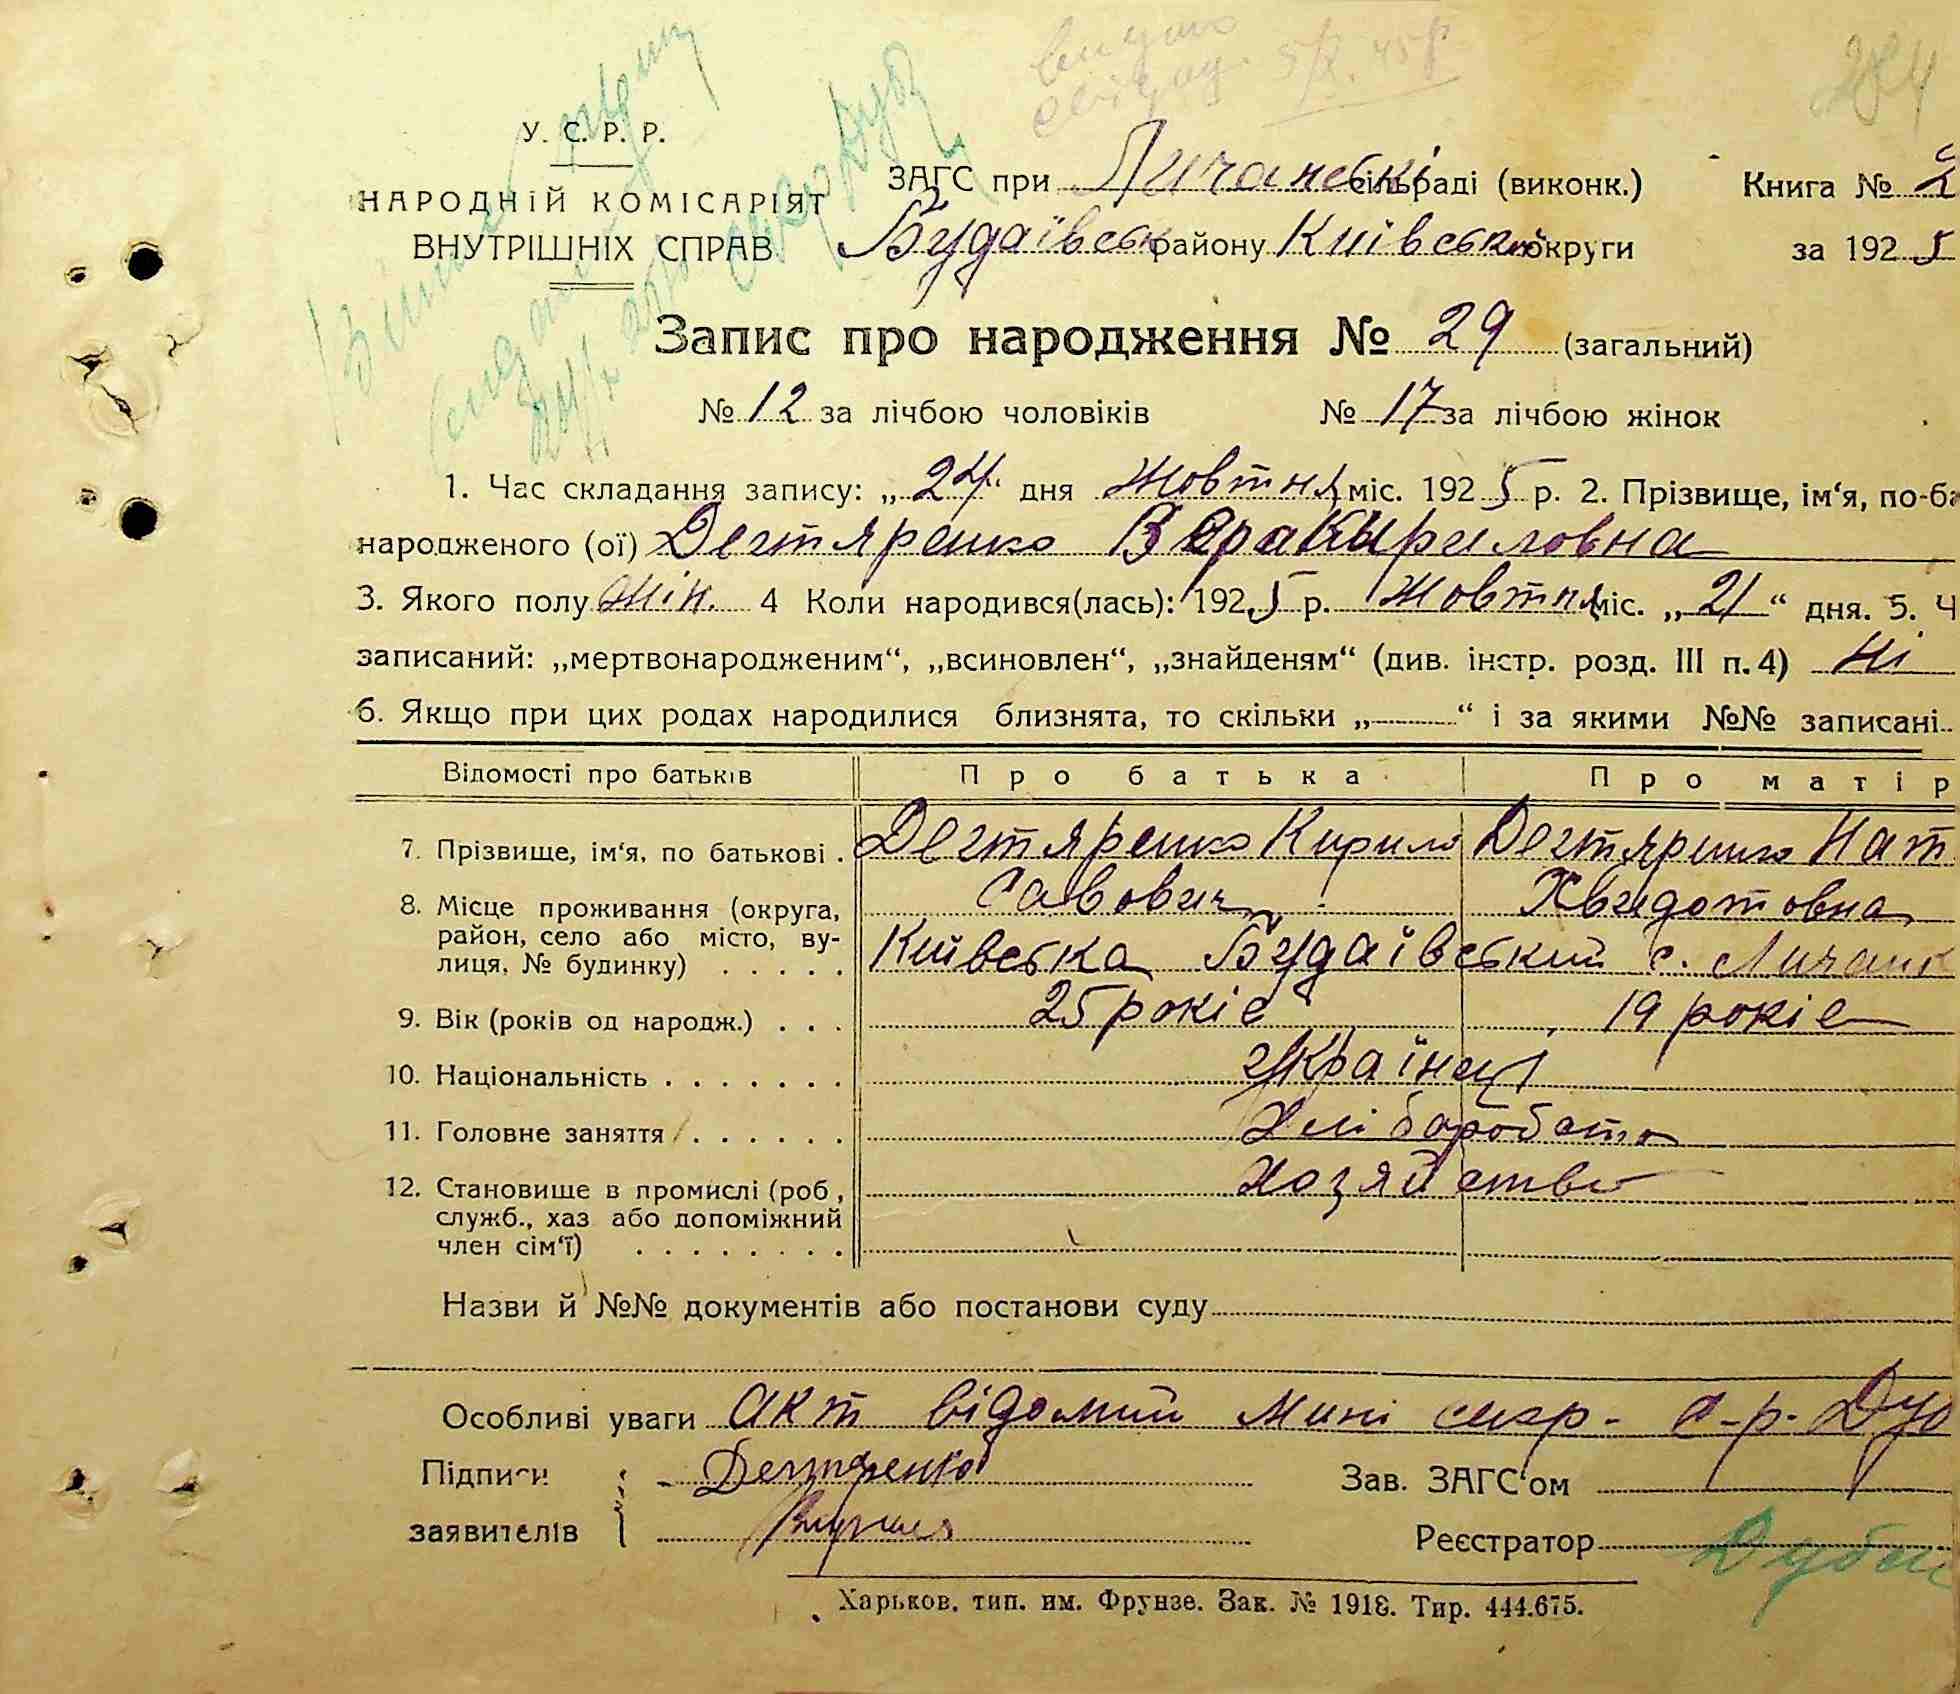 видано
свід. 5/X. 45 р
284
У. С. Р. Р.
НАРОДНІЙ КОМІСАРІЯТ
ВНУТРІШНІХ СПРАВ
ЗАГС при Личанські сільраді (виконк.) Книга № 2
Будаївськ району Київської округи за 1925
Запис про народження № 29 (загальний)
№ 12 за лічбою чоловіків № 17 за лічбою жінок
1. Час складання запису: „24“ дня Жовтня міс. 1925 р. 2. Прізвище, ім‘я, по-ба
народженого (ої) Дегтяренко Вера Кириловна
3. Якого полу жін. 4 Коли народився(лась): 1925 р. Жовтня міс. „21“ дня. 5. Ч
записаний: „мертвонародженим“, „всиновлен“, „знайденям“ (див. інстр. розд. III п. 4) Ні
6. Якщо при цих родах народилися близнята, то скільки „—“ і за якими №№ записані
Відомості про батьків Про батька Про матір
7. Прізвище, ім‘я, по батькові . Дегтяренко Кирило Дегтяренко Нат
Савович Хведотовна
8. Місце проживання (округа,
район, село або місто, ву-
лиця, № будинку) . . . . . Київська Будаївський с. Личанк
9. Вік (років од народж.) . . . 25 років 19 років
10. Національність . . . . . . . Українці
11. Головне заняття . . . . . . Хліборобство
12. Становище в промислі (роб, Хозяйство
служб., хаз або допоміжний
член сім‘ї) . . . . . . . .
Назви й №№ документів або постанови суду
Особливі уваги Акт відомий мині секр. с-р. Дуб
Підписи Дегтяренко Зав. ЗАГС‘ом
заявителів Кирило Реєстратор Дубен
Харьков. тип. им. Фрунзе. Зак. № 1918. Тир. 444.675.